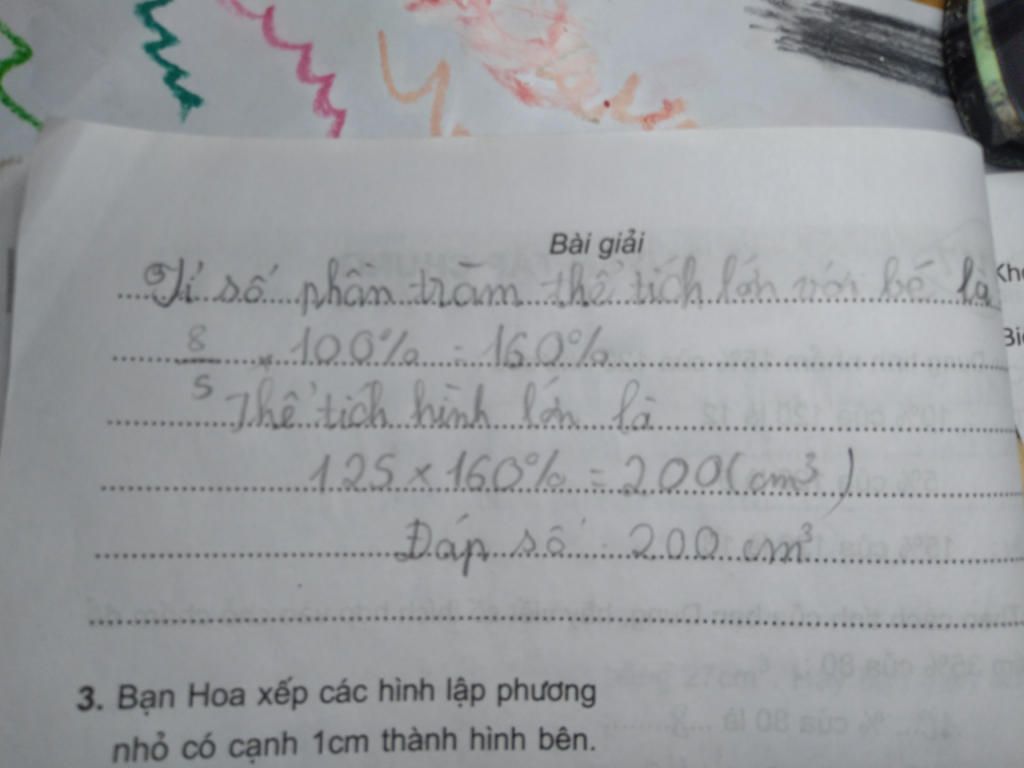 Bài giải
Tỉ số phần trăm thể tích lớn với bé là
8/5 × 100% = 160%
Thể tích hình lớn là
125 × 160% = 200 (cm³)
Đáp số : 200 cm³
3. Bạn Hoa xếp các hình lập phương
nhỏ có cạnh 1cm thành hình bên.